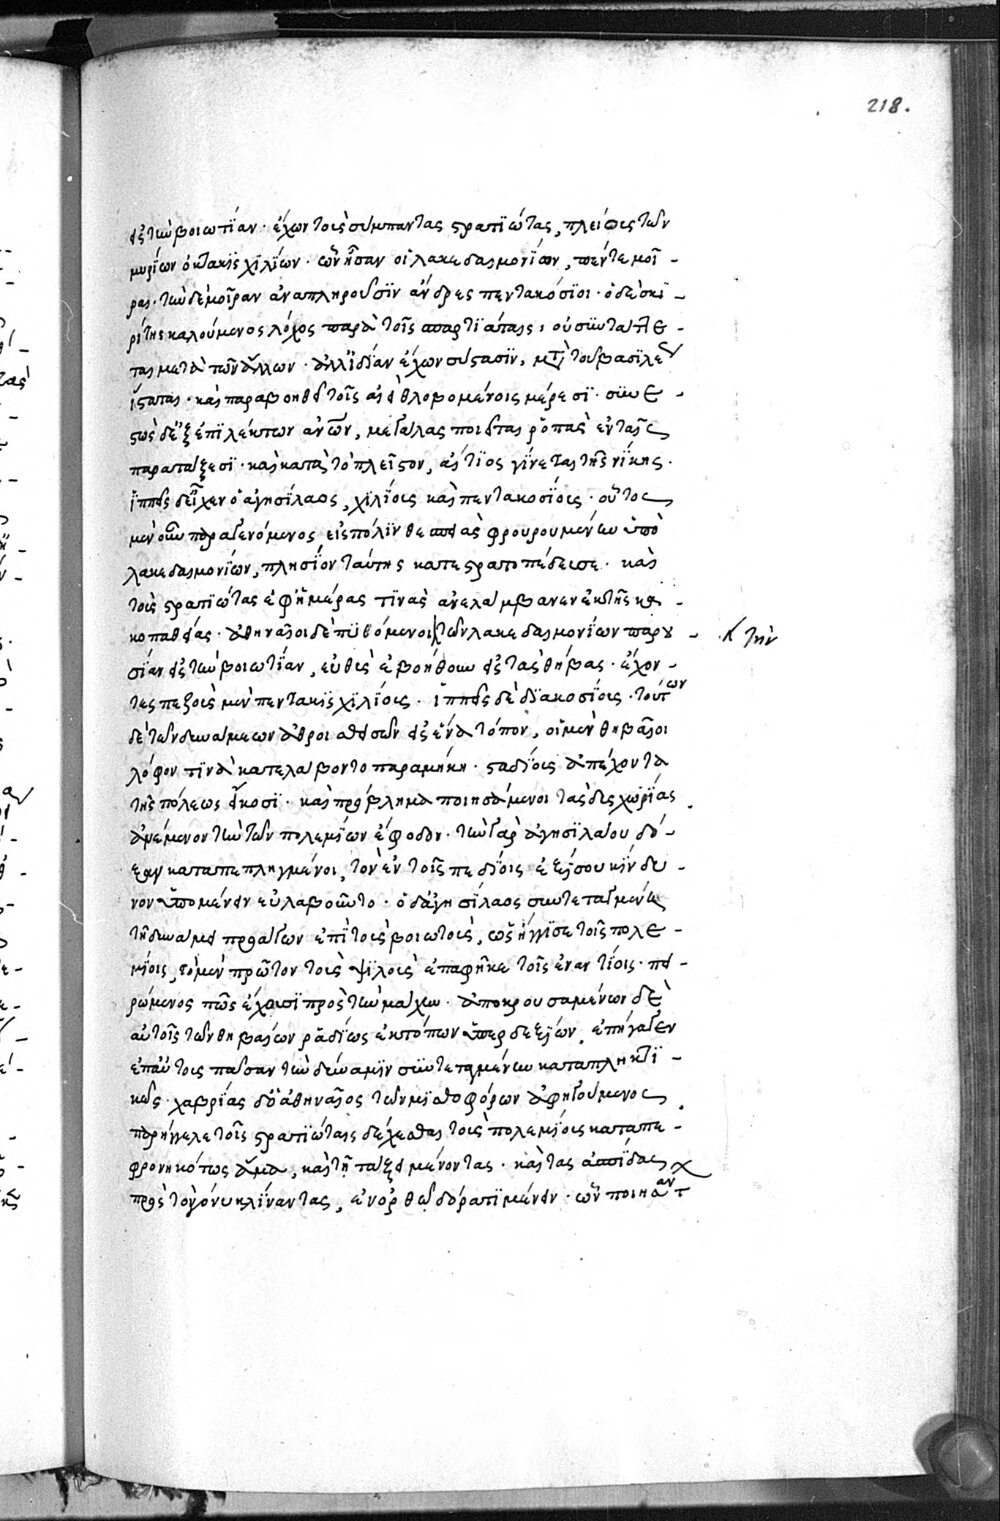 218.
εἰς τὴν βοιωτίαν· ἔχων τοὺς σύμπαντας στρατιώτας, πλείους τῶν
μυρίων ὀκτακισχιλίων· ὧν ἦσαν οἱ λακεδαιμονίων, πέντε μοῖ-
ραι· τὴν δὲ μοῖραν ἀναπληροῦσιν ἄνδρες πεντακόσιοι· ὁ δὲ σκι-
ρίτης καλούμενος λόχος παρὰ τοῖς σπαρτιάταις, οὐ συντάττε-
ται μετὰ τῶν ἄλλων· ἀλλ' ἰδίαν ἔχων σύστασιν, μετὰ τοῦ βασιλέως
ἵσταται· καὶ παραβοηθεῖ τοῖς ἀεὶ θλιβομένοις μέρεσι· συνε-
στὼς δ' ἐξ ἐπιλέκτων ἀνδρῶν, μεγάλας ποιεῖται ῥοπὰς ἐν ταῖς
παρατάξεσι· καὶ κατὰ τὸ πλεῖστον, αἴτιος γίνεται τῆς νίκης·
ἱππεῖς δ' εἶχεν ὁ ἀγησίλαος, χιλίους καὶ πεντακοσίους· οὗτος
μὲν οὖν παραγενόμενος εἰς πόλιν θεσπιὰς φρουρουμένην ὑπὸ
λακεδαιμονίων, πλησίον ταύτης κατεστρατοπέδευσε· καὶ
τοὺς στρατιώτας ἐφ' ἡμέρας τινὰς ἀνελάμβανεν ἐκ τῆς κα-
κοπαθείας· ἀθηναῖοι δὲ πυθόμενοι τῶν λακεδαιμονίων παρου- · τὴν
σίαν εἰς τὴν βοιωτίαν, εὐθὺς ἐβοήθουν εἰς τὰς θήβας· ἔχον-
τες πεζοὺς μὲν πεντακισχιλίους· ἱππεῖς δὲ διακοσίους· τούτων
δὲ τῶν δυνάμεων ἀθροισθεισῶν εἰς ἕνα τόπον, οἱ μὲν θηβαῖοι
λόφον τινὰ κατελάβοντο παραμήκη· σταδίους ἀπέχοντα
τῆς πόλεως εἴκοσι· καὶ πρόβλημα ποιησάμενοι τὰς δυσχωρίας
ἀνέμενον τὴν τῶν πολεμίων ἔφοδον· τὴν γὰρ ἀγησιλάου δό-
ξαν καταπεπληγμένοι, τὸν ἐν τοῖς πεδίοις ἐξ ἴσου κίνδυ-
νον ὑπομένειν εὐλαβοῦντο· ὁ δ' ἀγησίλαος συντεταγμένῃ
τῇ δυνάμει προάγων ἐπὶ τοὺς βοιωτοὺς, ὡς ἤγγισε τοῖς πολε-
μίοις, τὸ μὲν πρῶτον τοὺς ψιλοὺς ἐπαφῆκε τοῖς ἐναντίοις· πει-
ρώμενος πῶς ἔχουσι πρὸς τὴν μάχην· ἀποκρουσαμένων δὲ
αὐτοὺς τῶν θηβαίων ῥᾳδίως ἐκ τόπων ὑπερδεξίων, ἐπήγαγεν
ἐπ' αὐτοὺς πᾶσαν τὴν δύναμιν συντεταγμένην καταπληκτι-
κῶς· χαβρίας δ' ὁ ἀθηναῖος τῶν μισθοφόρων ἀφηγούμενος
παρήγγειλε τοῖς στρατιώταις δέχεσθαι τοὺς πολεμίους καταπε-
φρονηκότως ἅμα, καὶ τῇ τάξει μένοντας· καὶ τὰς ἀσπίδας
πρὸς τὸ γόνυ κλίναντας, ἐν ὀρθῷ δόρατι μένειν· ὧν ποιησάντ